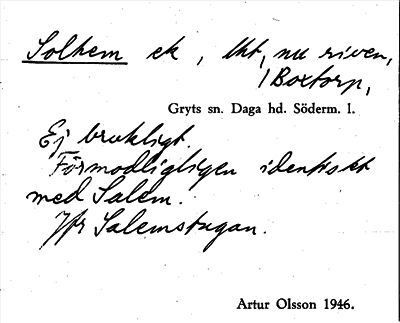 Solhem ek, lht, nu riven,
/ Boxtorp,
Gryts sn. Daga hd. Söderm. l.
Ej brukligt.
Förmodligtigen identiskt
med Salem.
Jfr Salemstugan.
Artur Olsson 1946.